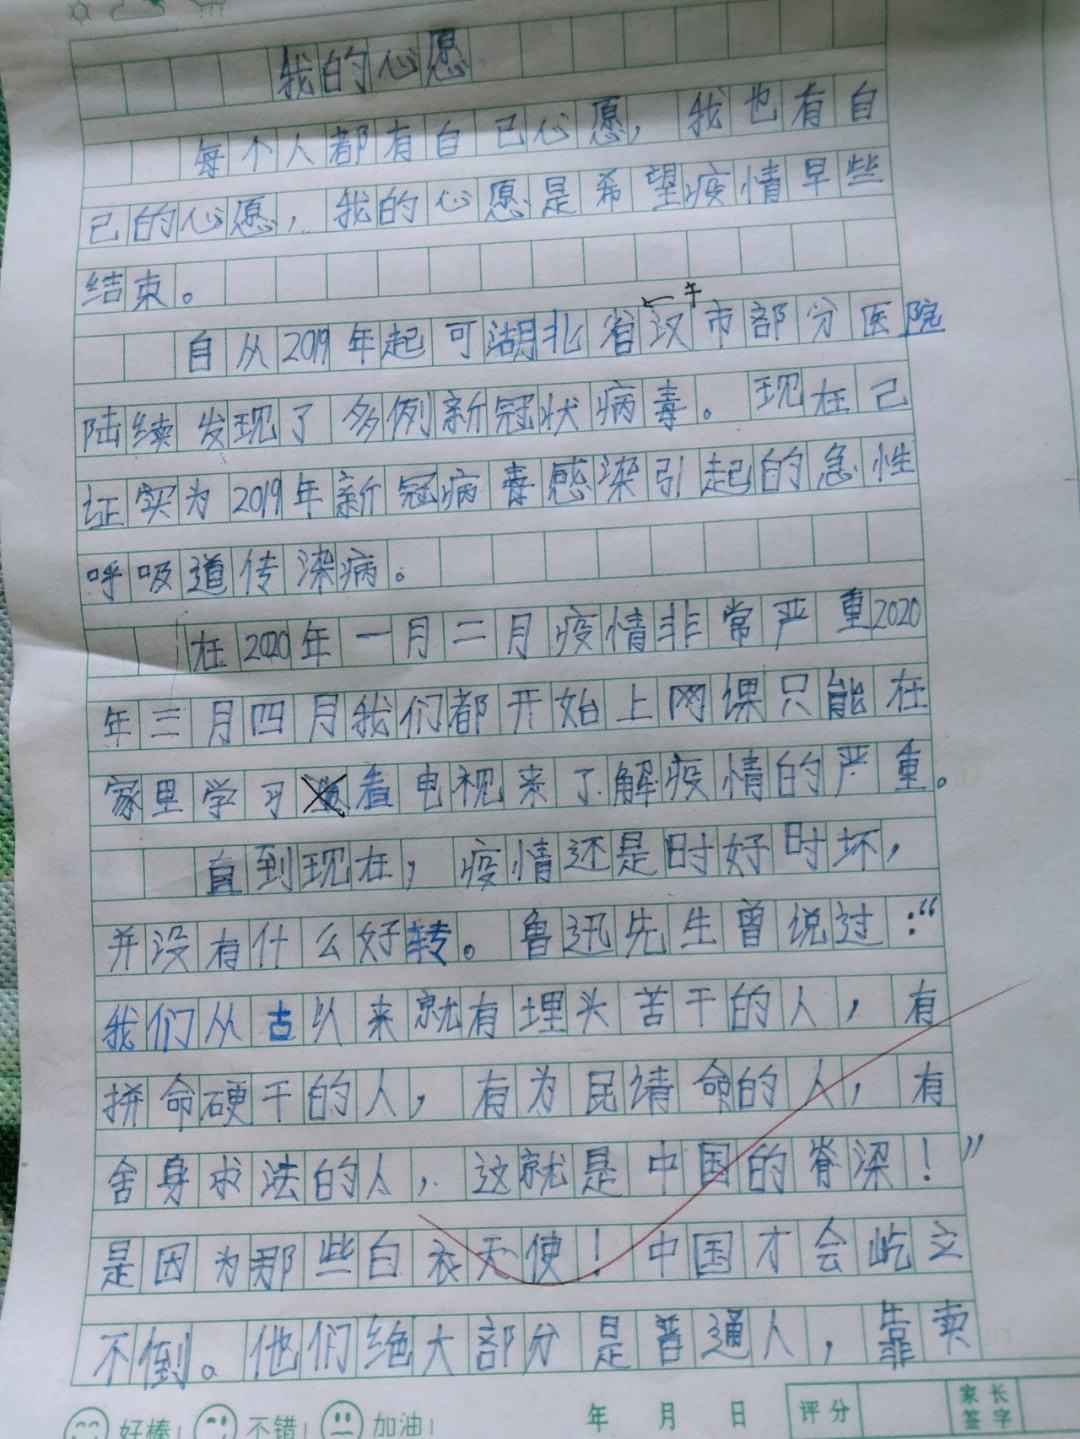 我的心愿
每个人都有自己心愿，我也有自
己的心愿，我的心愿是希望疫情早些
结束。
自从2019年起可湖北省汉市部分医院
陆续发现了多例新冠状病毒。现在己
证实为2019年新冠病毒感染引起的急性
呼吸道传染病。
在2020年一月二月疫情非常严重2020
年三月四月我们都开始上网课只能在
家里学习看电视来了解疫情的严重。
直到现在，疫情还是时好时坏，
并没有什么好转。鲁迅先生曾说过：“
我们从古以来就有埋头苦干的人，有
拼命硬干的人，有为民请命的人，有
舍身求法的人，这就是中国的脊梁！”
是因为那些白衣天使！中国才会屹立
不倒。他们绝大部分是普通人，靠卖
好棒! 不错! 加油! 年 月 日 评分 家长签字